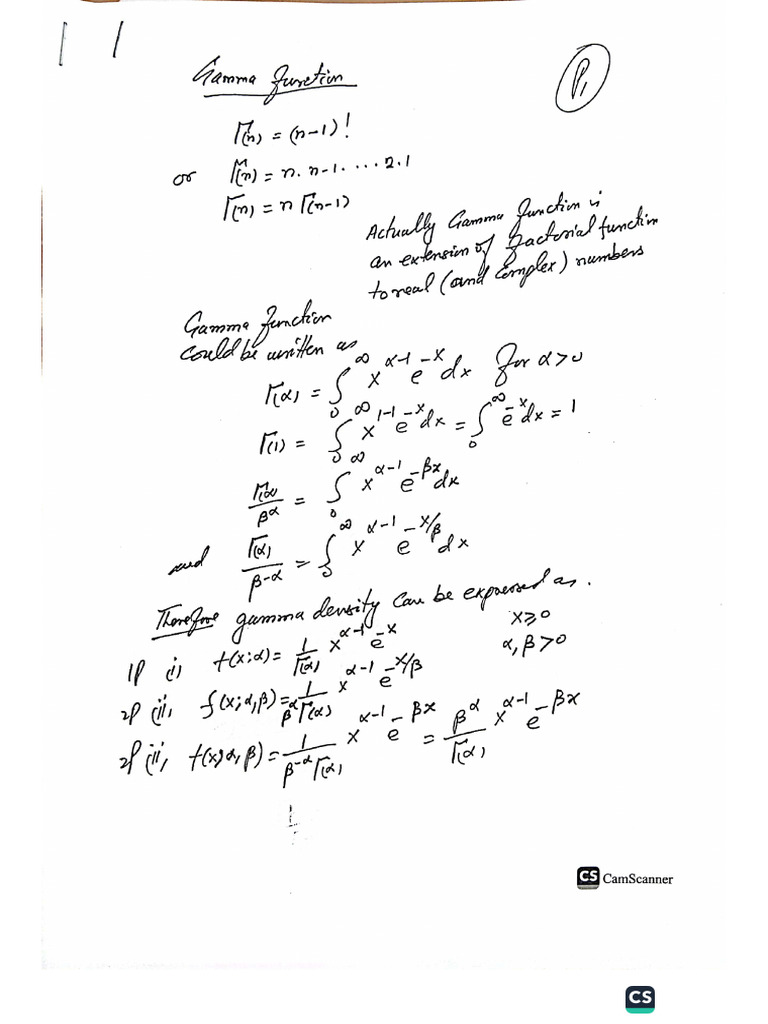 Gamma Function
P1
Γ(n) = (n-1)!
or Γ(n) = n. n-1. ... 2.1
Γ(n) = n Γ(n-1)
Actually Gamma Function is
an extension of factorial function
to real (and complex) numbers
Gamma Function
could be written as
Γ(α) = ∫₀^∞ x^(α-1) e^(-x) dx for α>0
Γ(1) = ∫₀^∞ x^(1-1) e^(-x) dx = ∫₀^∞ e^(-x) dx = 1
Γ(α)/β^α = ∫₀^∞ x^(α-1) e^(-βx) dx
and Γ(α)/β^(-α) = ∫₀^∞ x^(α-1) e^(-x/β) dx
Therefore gamma density can be expressed as.
x≥0
α, β>0
1P (i) f(x;α) = 1/Γ(α) x^(α-1) e^(-x)
2P (ii, f(x;α,β) = 1/(β^α Γ(α)) x^(α-1) e^(-x/β)
2P (ii, f(x;α,β) = 1/(β^(-α) Γ(α)) x^(α-1) e^(-βx) = β^α/Γ(α) x^(α-1) e^(-βx)
CS CamScanner
CS